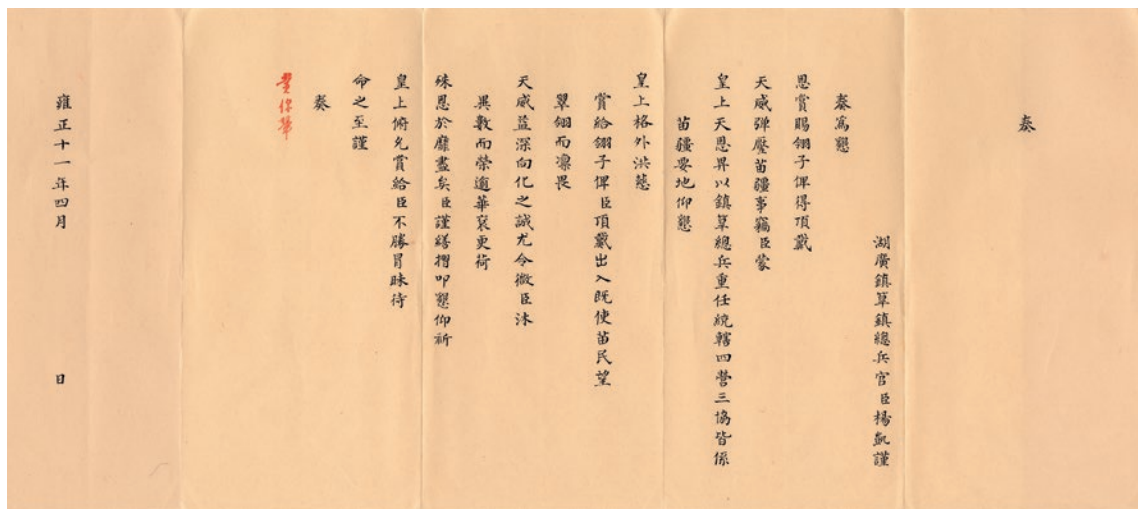 奏
湖廣鎮筸鎮總兵官臣楊凱謹
奏為懇
恩賞賜翎子俾得頂戴
天威彈壓苗疆事竊臣蒙
皇上天恩畀以鎮筸總兵重任統轄四營三協皆係
苗疆要地仰懇
皇上格外洪慈
賞給翎子俾臣頂戴出入既使苗民望
翠翎而凛畏
天威益深向化之誠尤令微臣沐
異數而榮逾華袞更荷
殊恩於靡盡矣臣謹繕摺叩懇仰祈
皇上俯允賞給臣不勝冒昧待
命之至謹
奏
賞你翎
雍正十一年四月 日